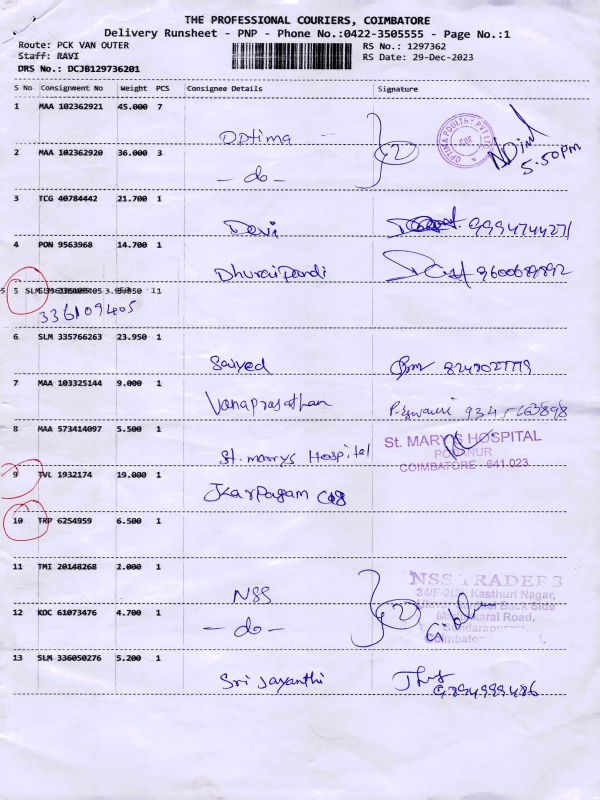 THE PROFESSIONAL COURIERS, COIMBATORE
Delivery Runsheet - PNP - Phone No.:0422-3505555 - Page No.:1
Route: PCK VAN OUTER RS No.: 1297362
Staff: RAVI RS Date: 29-Dec-2023
DRS No.: DCJB129736201
S No Consignment No Weight PCS Consignee Details Signature
1 MAA 102362921 45.000 7
Optima 2 OPTIMA POULTRY PVT LTD CBE 5.50pm
2 MAA 102362920 36.000 3
- do -
3 TCG 40784442 21.700 1
Devi 9994744271
4 PON 9563968 14.700 1
Dhuraipandi 9600689892
5 SLM
336109405
6 SLM 335766263 23.950 1
Saiyed
7 MAA 103325144 9.000 1
Vanaprasathan P. Eswari
8 MAA 573414097 5.500 1
St. marys Hospital St. MARY'S HOSPITAL
PODANUR
COIMBATORE - 641 023
9 TVL 1932174 19.000 1
Karpagam
10 TRP 6254959 6.500 1
11 TMI 20148268 2.000 1
NSS 2 NSS TRADERS
34/F-2(3), Kasthuri Nagar,
Back Side
Road,
12 KOC 61073476 4.700 1
- do -
Coimbatore
13 SLM 336050276 5.200 1
Sri Jayanthi 9894999486